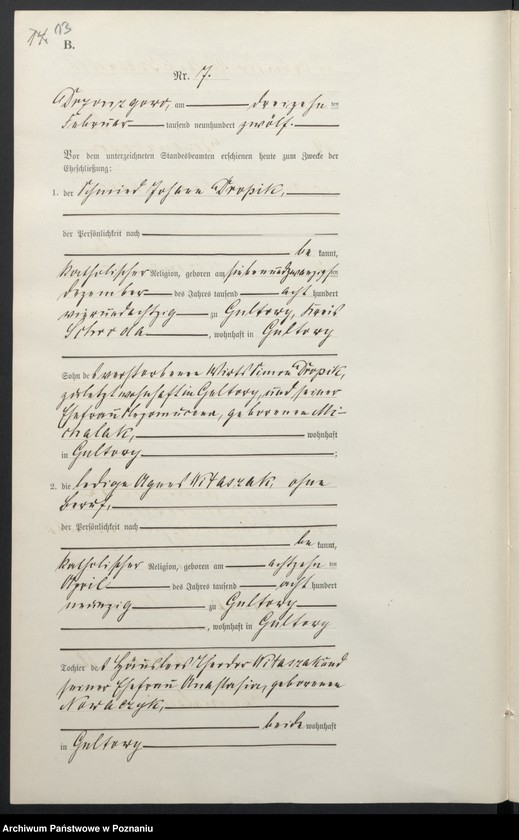 13
B.
Nr. 7.
am dreizehn ten
Februar tausend neunhundert zwölf.
Vor dem unterzeichneten Standesbeamten erschienen heute zum Zwecke der
Eheschließung:
1. der Schmied Johann Dropik,
der Persönlichkeit nach
be kannt,
katholischer Religion, geboren am siebenundzwanzigsten
Dezember des Jahres tausend acht hundert
vierundachtzig zu Gultowy, Kreis
Schroda, wohnhaft in Gultowy
Sohn des verstorbenen Wirts Simon Dropik,
zuletzt wohnhaft in Gultowy, und seiner
Ehefrau Nepomucena, geborenen Mi-
chalak, wohnhaft
in Gultowy;
2. die ledige Agnes Witaszak, ohne
Beruf,
der Persönlichkeit nach
be kannt,
katholischer Religion, geboren am achtzehn ten
April des Jahres tausend acht hundert
neunzig zu Gultowy
, wohnhaft in Gultowy
Tochter des Häuslers Theodor Witaszak und
seiner Ehefrau Anastasia, geborenen
Nowaczyk,
beide wohnhaft
in Gultowy
Archiwum Państwowe w Poznaniu